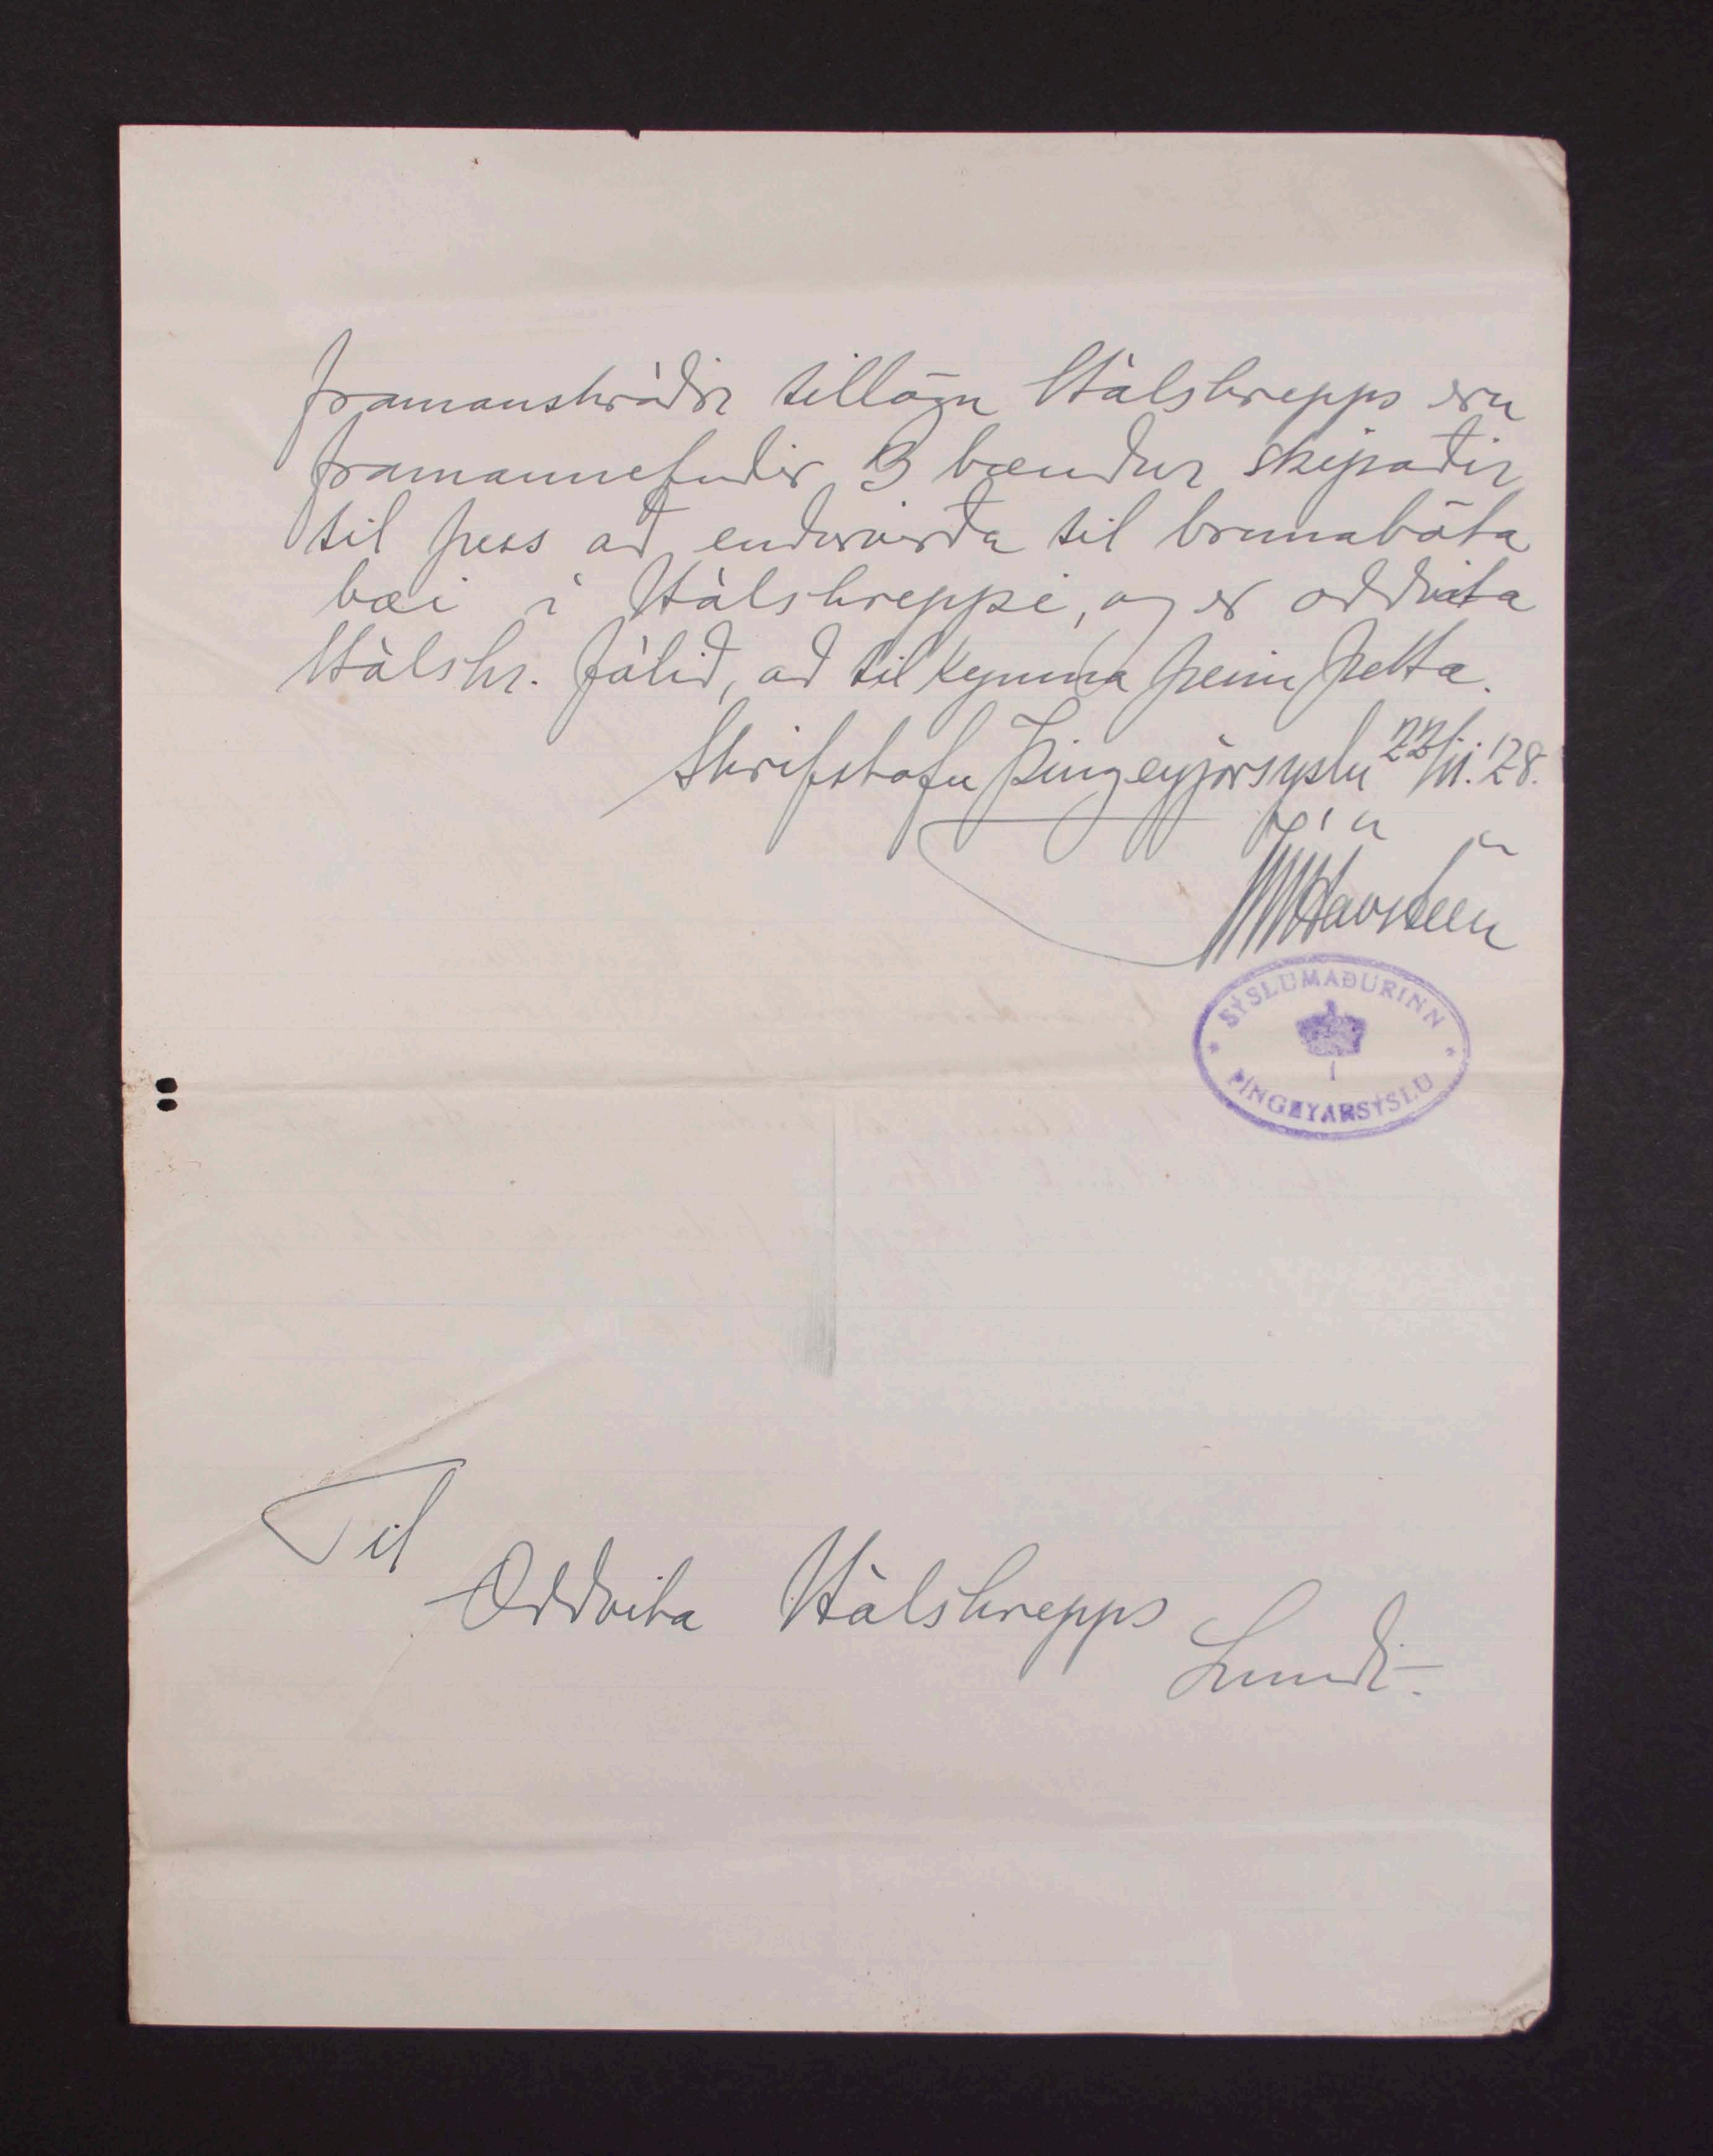 framanskráðri tillögu Hálshrepps eru
framannefndir 3 bændur skipaðir
til þess að endurvirða til brunabóta
bæi í Hálshreppi, og er oddvita
Hálshr. falið, að tilkynna þeim þetta.
Skrifstofu Þingeyjarsyslu 22/11. '28.
Júl Havsteen
SÝSLUMAÐURINN
Í
ÞINGEYARSÝSLU
Til
Oddvita Hálshrepps
Lundi.